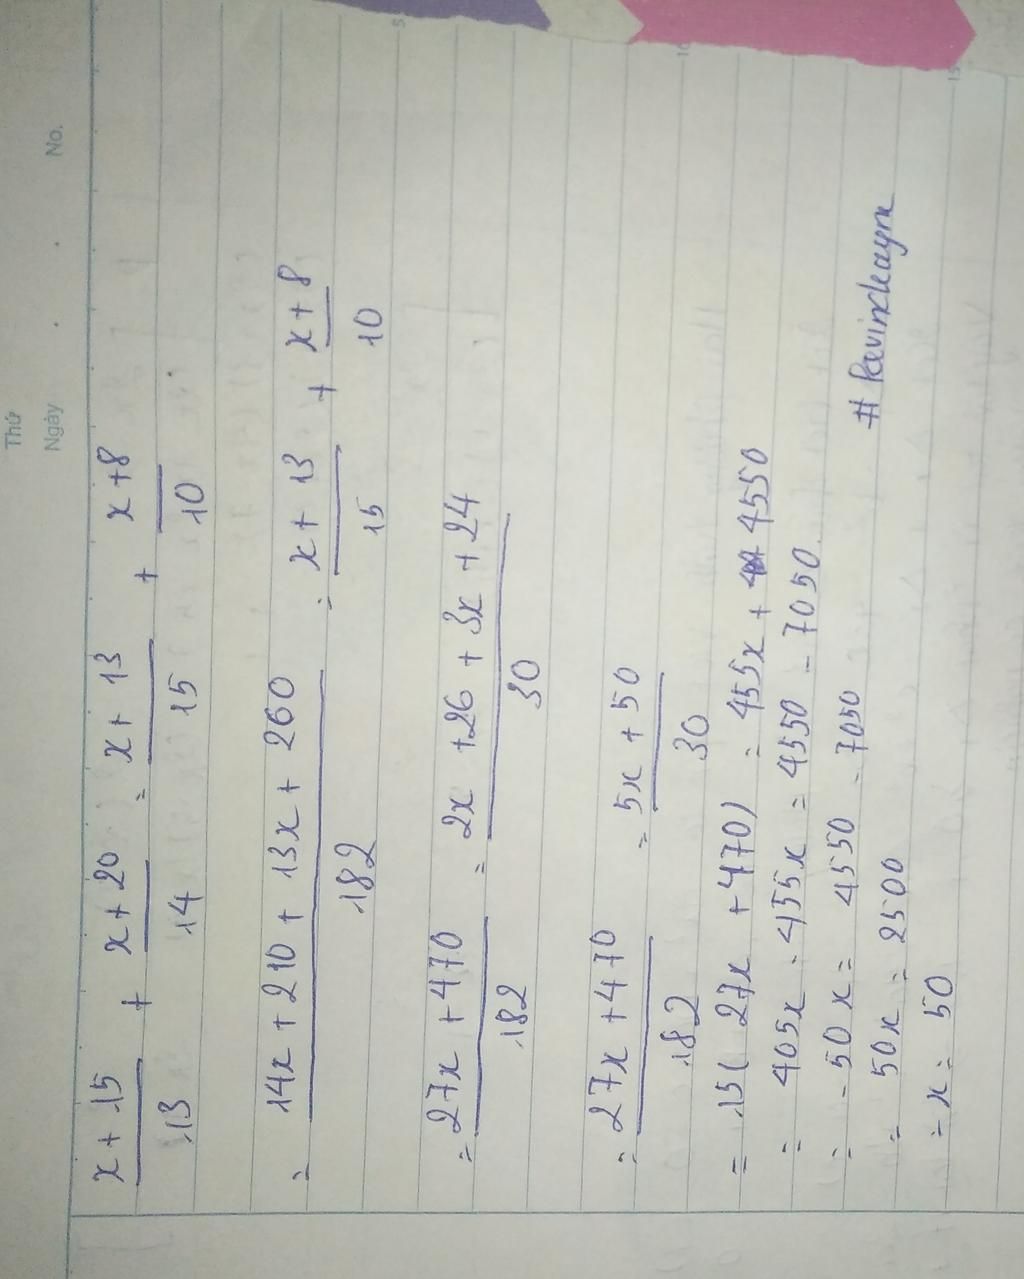 Thứ
Ngày . . No.
x + 15 / 13 + x + 20 / 14 = x + 13 / 15 + x + 8 / 10
= 14x + 210 + 13x + 260 / 182 = x + 13 / 15 + x + 8 / 10
= 27x + 470 / 182 = 2x + 26 + 3x + 24 / 30
= 27x + 470 / 182 = 5x + 50 / 30
= 15( 27x + 470) = 455x + 4550
= 405x - 455x = 4550 - 7050
= - 50x = 4550 - 7050
= 50x = 2500
= x = 50
5
10
15